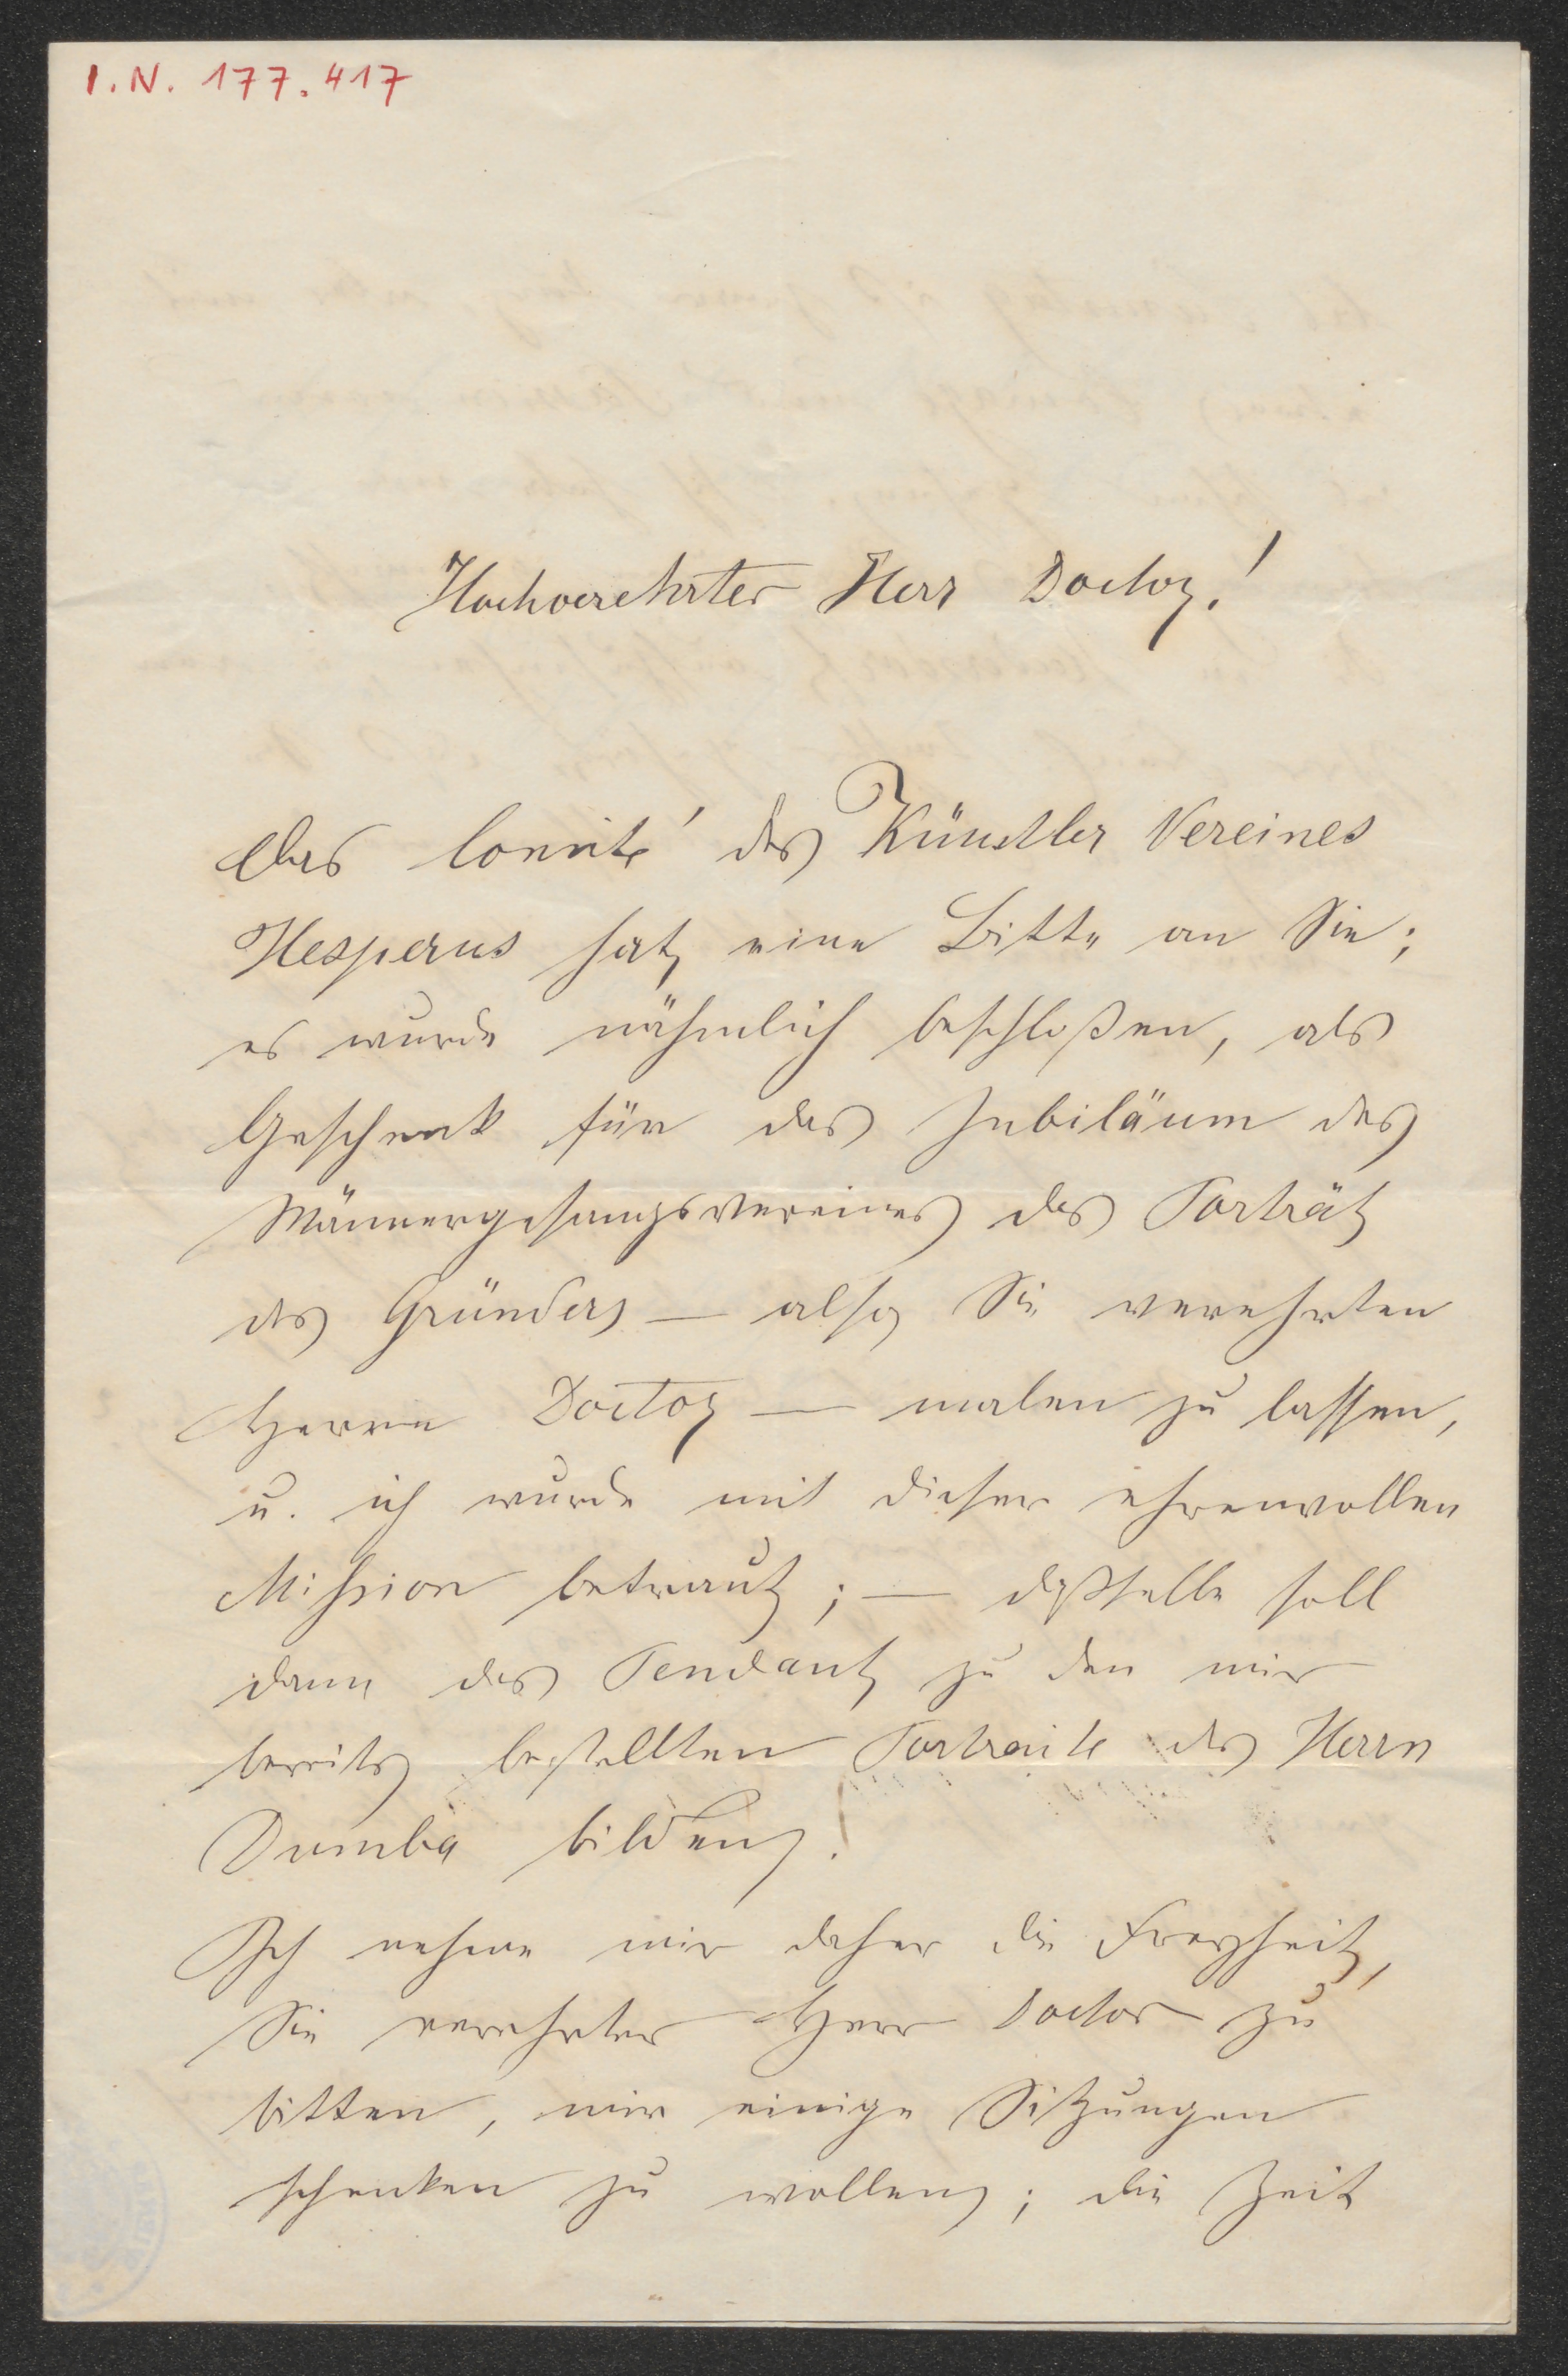 I.N. 177.417
Hochverehrter Herr Doctor!
Das Comité des Künstler Vereines
Hesperus hat eine Bitte an Sie;
es wurde nähmlich beschloßen, als
Geschenk für das Jubiläum des
Männergesangsvereines das Porträt
des Gründers — also Sie verehrten
Herrn Doctor — malen zu lassen,
u. ich wurde mit dieser ehrenvollen
Mission betraut; — daßselbe soll
dann das Pendant zu den mir
bereits bestellten Portraite des Herrn
Dumba bilden.
Ich nehme mir daher die Freyheit,
Sie verehrter Herr Doctor zu
bitten, mir einige Sitzungen
schenken zu wollen; die Zeit